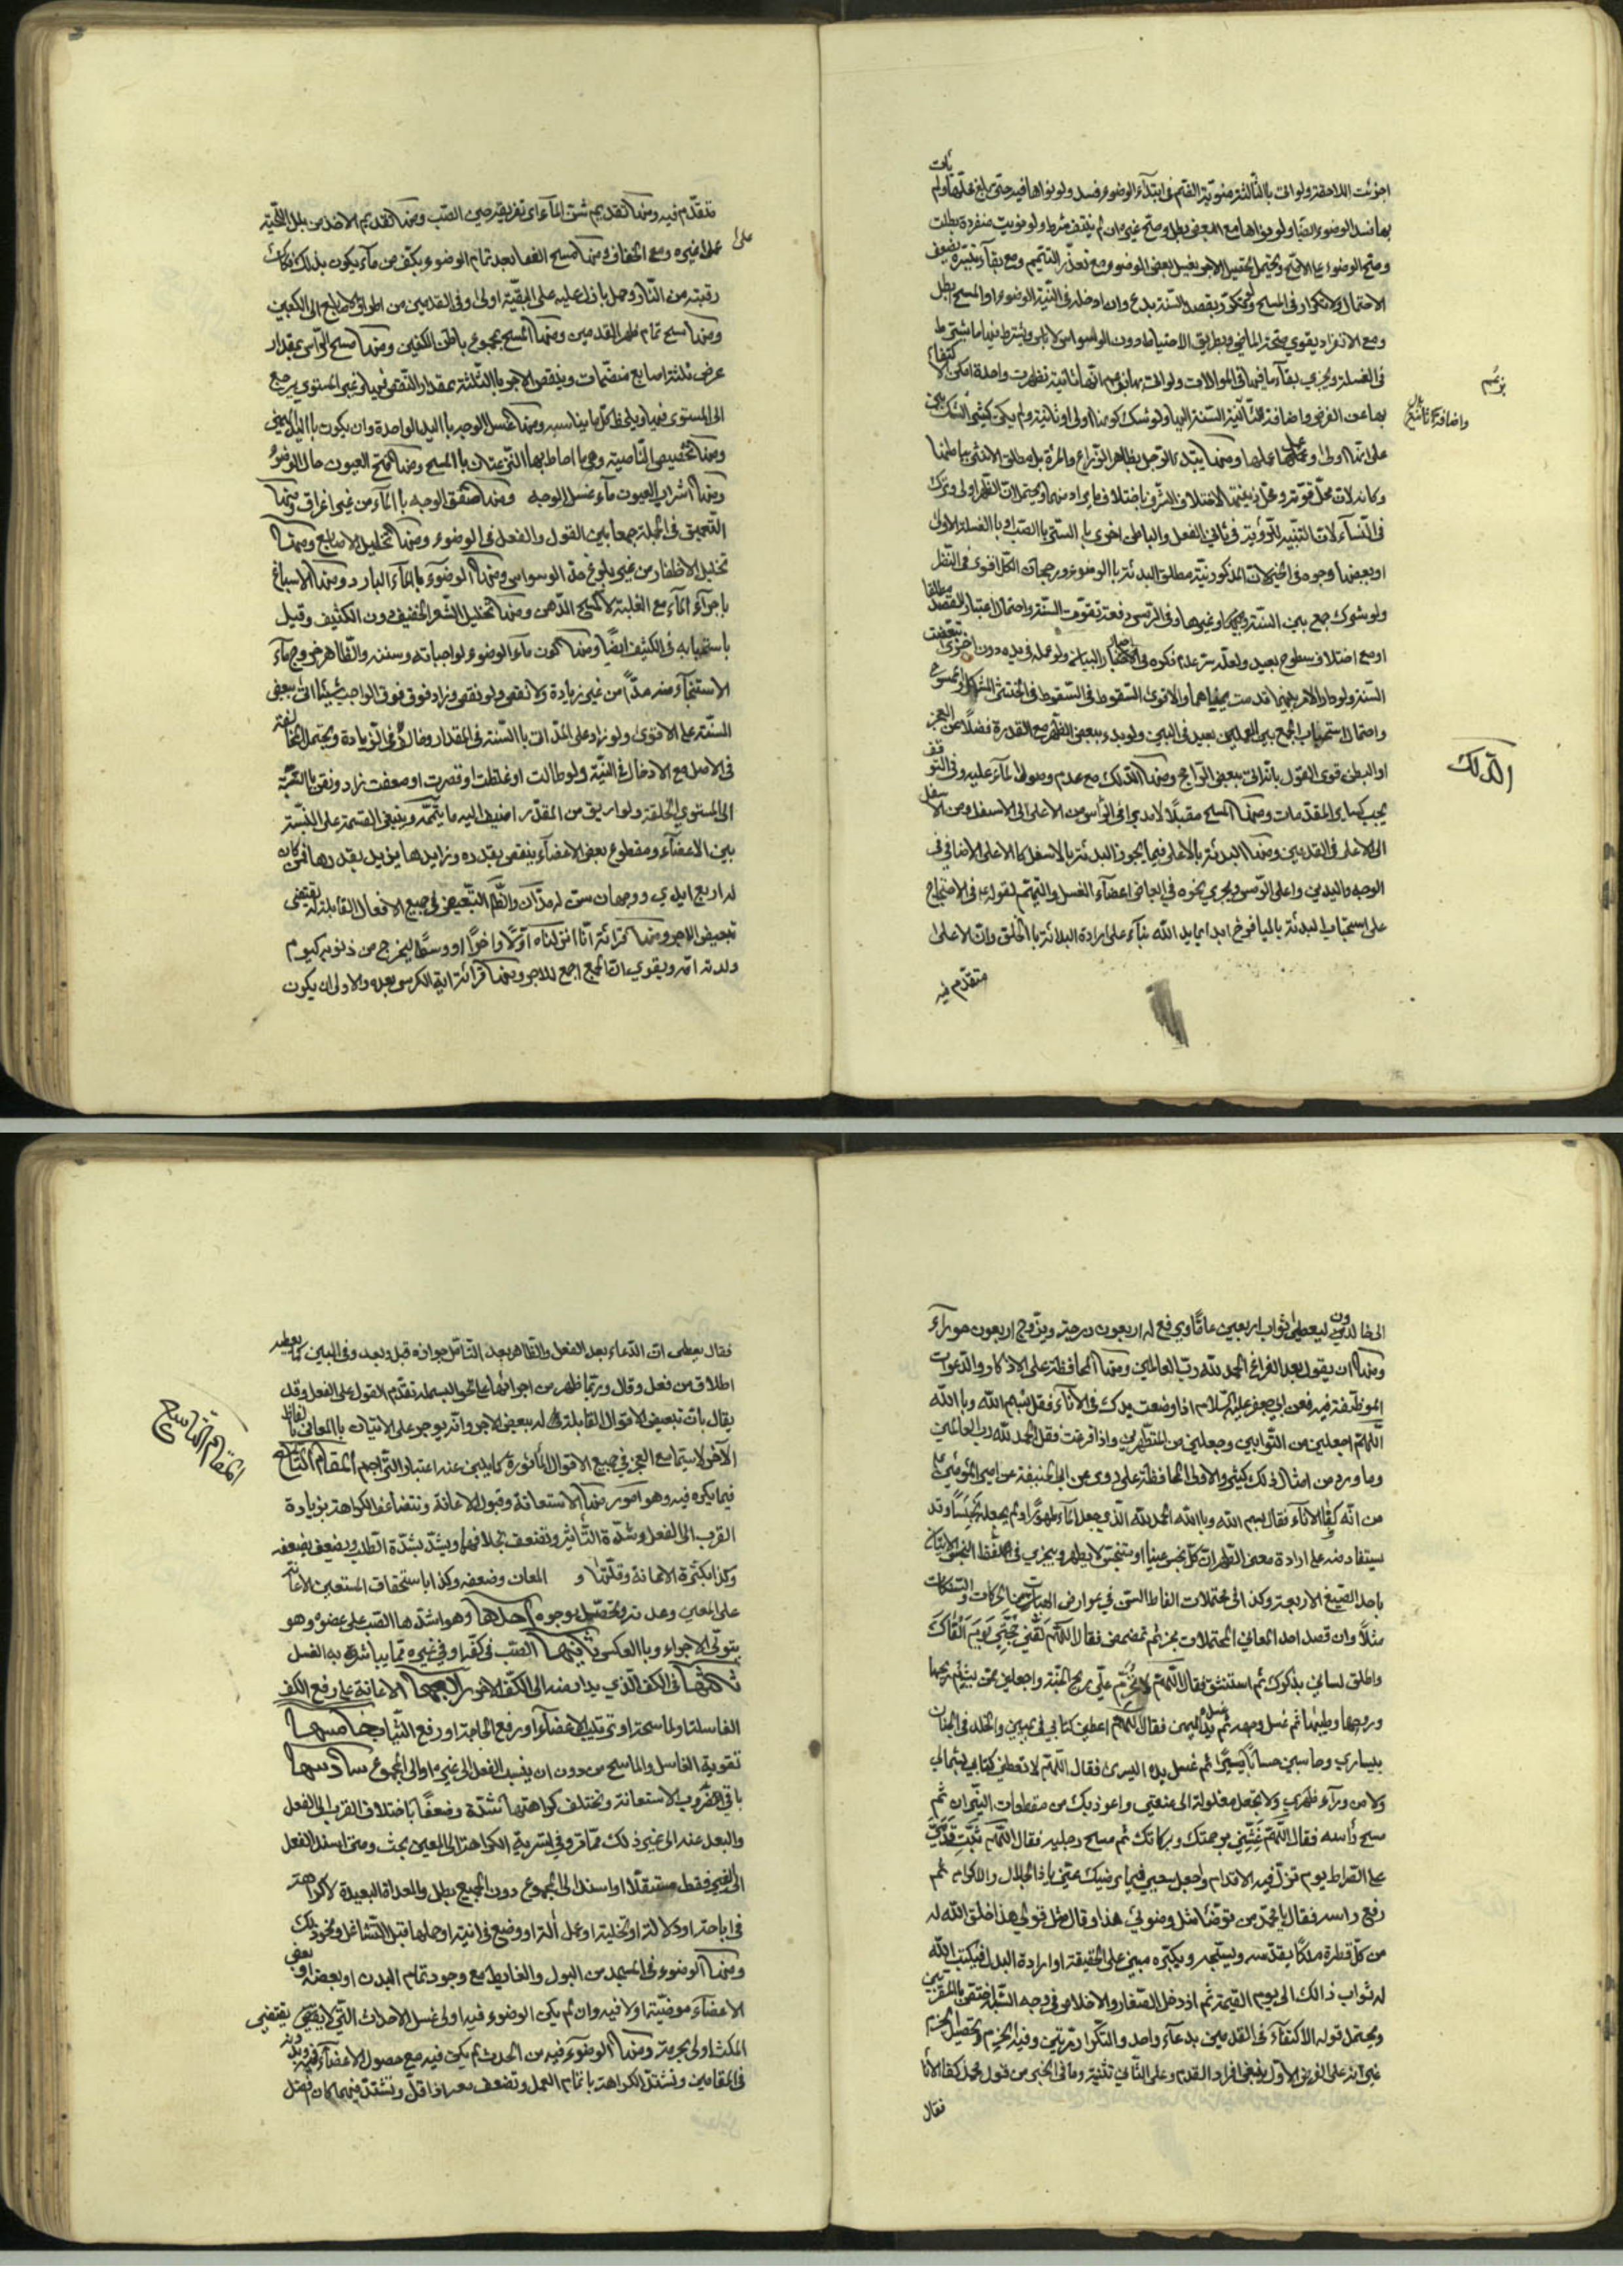 اجزئت اللاحقة ولو اتى بالثالثة منويّة الفتم في ابتدآء الوضوء فسد ولو نواها فيه حتى بلغ محلّها ولم يأت
بها فسد الوضوء ايضا ولو نواها مع البعض بطل وصحّ غيره ان لم يقيّد بشرط ولو نويت منفردة بطلت
وصحّ الوضوء على الاصحّ ويحتمل تحصيل الاجر بغسل بعض الوضوء مع تعذّر التتميم ومع بقآء نيّته يضعف
الاحتمال ولا تكرار في المسح ولو كرّر بقصد السنّة بدع وان ادخله في النيّة الوضوء او المسح بطل
ومع الانفراد يقوى صحّة الماضي وبطريق الاحتياط دون الوسواس لا باس ويشترط فيها ما يشترط
في الغسلة ويجزي بقآء ما فيها في الموالات ولو اتى بها بزعم انها ثانية فظهرت واحدة امكن الاكتفاء
بزعم
بها عن الفرض واضافة الثانية السنّة اليها ولو شك كونها اولى او ثانية ولم يكن كثير الشك بنى
واضافة ثانية بدل
على انها اولى وعمل عملها ومنها يبتدء الرجل بظاهر الذراع والمرئة بل مطلق الانثى بباطنها
وكانه لان محلّ قوّته وعمل زينتها لاختلاف الشرف باختلاف ما يراد منهما ويحتمل ان الظهر اولى وترك
في النسآء لان التنبيه للرؤية في ثاني الفعل والباطن احرى بالستر بالصبّ او بالغسلة الاولى
او ببعضها وجوه في الخيرات المذكور نيّة مطلق البدئة بالوضوء ورجحان الكل اقوى في النظر
ولو شرك جمع بين السنّة وغيرها وفي الرمس دفعة تفوّت السنّة واحتمال اعتبار القصد مطلقا
او مع اختلاف سطوح بعيد ولعلّه سرّ عدم ذكره في الاخبار البيانيّة ولو عمله في يد دون اخرى تبعّضت
السنّة ولو دار الامر بينهما قدمت يمناهما والاقوى السقوط في السقوط في الخنثى المشكل والممسوح
واحتمال استحباب الجمع بين العملين بعيد في البين ولو بدء ببعض الظهر مع القدرة فضلا عن العجز
او البطن قوى القول باتيانه ببعض الراجح ومنها الدلك مع عدم وصول المآء عليه وفي التوقف
الدلك
يجب كساير المقدّمات ومنها المسح مقبلا لا مدبرا في الرأس من الاعلى الى الاسفل ومن الاسفل
الى الاعلى في القدمين ومنها البدئة بالاعلى فيما يجوز البدئة بالاسفل كالاعلى الاضافي في
الوجه واليدين واعلى الرؤس ويجري نحوه في ابعاض اعضآء الغسل والتيمّم لقوله في الاحتجاج
على استحباب البدئة باليافوخ ابدأ بما بدأ الله بناء على ارادة البدائة بالخلق وان الاعلى
متقدّم فيه
متقدّم فيه ومنها تقديم شنّ المآء اى تفريقه حين الصبّ ومنها تقديم الاخذ من بلل اللحية
على غيره ومع الجفاف ومنها مسح القفا بعد تمام الوضوء بكفّ من مآء يكون بذلك فكاك
على
رقبته من النار وحمل باذل عليه على البقيّة اولى وفي القدمين من اطراف الاصابع الى الكعبين
ومنها مسح تمام ظهر القدمين ومنها المسح بمجموع باطن الكفين ومنها مسح الرأس بمقدار
عرض ثلثة اصابع منضمّات وينقص الاجر بالثلثة بمقدار النقص فيها وغير المستوى يرجع
الى المستوى فيها ويلحظ كلّ ما يناسبه ومنها غسل الوجه باليد الواحدة وان يكون باليد اليمنى
ومنها تخصيص الناصية وهي ما احاط بها النزعتان بالمسح ومنها فتح العيون حال الوضوء
ومنها اشراب العيون مآء غسل الوجه ومنها صفق الوجه بالمآء من غير اغراق ومنها
التعميق في الجملة جمعا بين القول والفعل في الوضوء ومنها تخليل الاصابع ومنها
تخليل الاظفار من غير بلوغ حدّ الوسواس ومنها الوضوء بالمآء البارد ومنها الاسباغ
باجراء المآء مع الغلبة لا كمسح الدهن ومنها تخليل الشعر الخفيف دون الكثيف وقيل
باستحبابه في الكثيف ايضا ومنها كون مآء الوضوء لواجباته وسننه والظاهر خروج مآء
الاستنجآء منه مدّا من غير زيادة ولا نقص ولو نقص وزاد فوق فوق الواجب شيئا اتى ببعض
السنّة على الاقوى ولو زاد على المدّ اتى بالسنّة في المقدار وخالف في الزيادة ويحتمل المخالفة
في الاصل مع الادخال في النيّة ولو طالت او غلظت او قصرت او ضعفت زاد ونقص بالنسبة
الى المستوى الخلقة ولو اريق من المقدّر اضيف اليه ما يتمّمه وينبغي القسمة على النسبة
بين الاعضآء ومقطوع بعض الاعضآء ينقص بقدره وزايدها يزيد بقدرها فمن كان
له اربع ايدي ووجهان سنّ له مدّان والظاهر التبعيض في جميع الافعال القابلة له يقتضى
تبعيض الاجر ومنها قرائة انّا انزلناه اوّلا واخرا او وسطا ليخرج من ذنوبه كيوم
ولدته امّه ويقوى ان الجمع اجمع للاجر ومنها قرائة اية الكرسى بعده والاولى ان يكون
الى خالدون ليعطى ثواب اربعين عاما ويرفع له اربعون درجة ويزوّج اربعون حورآء
ومنها ان يقول بعد الفراغ الحمد لله ربّ العالمين ومنها المحافظة على الاذكار والدعوات
الموظّفة فيه فعن ابى جعفر عليه السّلام اذا وضعت يدك في الانآء فقل بسم الله وبالله
اللّهمّ اجعلنى من التوّابين وجعلنى من المتطهّرين واذا فرغت فقل الحمد لله رب العالمين
وما ورد من امثال ذلك كثير والاولى المحافظة على ما روى عن ابن الحنفيّة عن امير المؤمنين ع
من انّه كفأ الانآء فقال بسم الله وبالله الحمد لله الذي جعل المآء طهورا ولم يجعله نجسا وقد
يستفاد منه على ارادة معنى التطهير ان كلّ نجس عينا او متنجّس لا يطهر ويجزي في لفظ النجس الاتيان
باحد الصيغ الاربعة وكذا فى محتملات الفاظ السنن في عوارض العبارات من الحركات والسكنات
مثلا وان قصد احد المعاني المحتملات يجزي ثم تمضمض فقال اللّهمّ لقّنى حجّتى يوم القاك
واطلق لسانى بذكرك ثم استنشق فقال اللّهمّ لا تحرّم علىّ ريح الجنّة واجعلني ممّن يشمّ ريحها
وروحها وطيبها ثم غسل وجهه ثم غسل يده اليمنى فقال اللّهمّ اعطنى كتابى في يميني والخلد في الجنان
بيسارى وحاسبني حسابا يسيرا ثم غسل يده اليسرى فقال اللّهمّ لا تعطنى كتابي بشمالي
ولا من ورآء ظهري ولا تجعل مغلولة الى عنقي واعوذ بك من مقطعات النيران ثم
مسح رأسه فقال اللّهمّ غشّنى برحمتك وبركاتك ثم مسح رجليه فقال اللّهمّ ثبّت قدمىّ
على الصّراط يوم تزلّ فيه الاقدام واجعل سعيى فيما يرضيك عنّى يا ذا الجلال والاكرام ثم
رفع راسه فقال يا محمّد من توضّأ مثل وضوئى هذا وقال مثل قولي هذا خلق الله له
من كلّ قطرة ملكا يقدّسه ويسبّحه ويكبّره مبنى على الحقيقة او ارادة البدل فيكتب الله
له ثواب ذالك الى يوم القيمة ثم ادخل الصغار والاخلاص في وجه الشبه اختصّ بالمقربين
ويحتمل قوله الاكتفآء في القدمين بدعآء واحد والتكرار مرّتين وفيه الجزم وتحصيل الجزم
غير انه على الفرض الاوّل ينبغي افراد القدم وعلى الثاني تثنيته وما في الخبر من قول محمد كفأ الانا
فقال
فقال يعطى ان الدعاء بعد الفعل والظاهر بعد التأمّل جوازه قبل وبعد وفي البين كما يعطيه
اطلاق من فعل وقال وربّما ظهر من اجرائها على نحو البسملة تقدّم القول على الفعل وقد
يقال بان تبعيض الاقوال القابلة له ببعض الاجر وانّه يوجر على الاتيان بالمعانى بالفاظ
الآخر لا سيّما مع العجز في جميع الاقوال المأثورة كما يلبىّ عنه اعتبار التراجم المقام التاسع
المقام التاسع
فيما يكره فيه وهو امور منها الاستعانة وقبول الاعانة وتتضاعف الكراهة بزيادة
القرب الى الفعل وشدّة التأثير وتضعف بخلافهما ويشتدّ بشدّة الطلب ويضعف بضعفه
وكذا بكثرة الاعانة وقلّتها و المعان وضعفه وكذا باستحقاف المستعين الاعانة
على المعين وعدمه وتحصّل بوجوه احدها وهو اشدّها الصّب على عضوه وهو
يتولّى الاجراء وبالعكس ثانيها الصّب في كفّه او في غيره ممّا يباشر به الغسل
ثالثها في الكف الذي يدار منه الى الكفّ الاخر رابعها الاعانة على رفع الكف
الغاسلة او الماسحة او تقليب الاعضآء او رفع الحاجة او رفع الثياب خامسها
تقوية الغاسل والماسح من دون ان ينسب الفعل الى غيره او الى المجموع سادسها
باقي ضروب الاستعانة وتختلف كراهتها شدّة وضعفا باختلاف القرب الى الفعل
والبعد عنه الى غير ذلك ممّا مرّ وفي تسرية الكراهة الى المعين بحث ومتى اسند الفعل
الى الغير فقط مستقلا او اسند الى المجموع دون الجميع بطل والمعدّاة البعيدة لا كراهة
في اباحة او دلالة او تخلية او عمل آلة او وضع في انية او حملها قبل التشاغل ونحو ذلك
ومنها الوضوء في المسجد من البول والغايط مع وجود تمام البدن او بعضه او بعض
الاعضآء موضيّة او لا فيه وان لم يكن الوضوء فيه اولى غسل الاحداث التي لا يقتضى
المكث اولى بحرمة ومنها الوضوء فيه من الحدث لم يكن فيه مع حصول الاعضآء فيه وبدنه
في المقامين وتشتدّ الكراهة باتمام العمل وتضعف معه اذا قلّ وتشتدّ فيما كان افضل